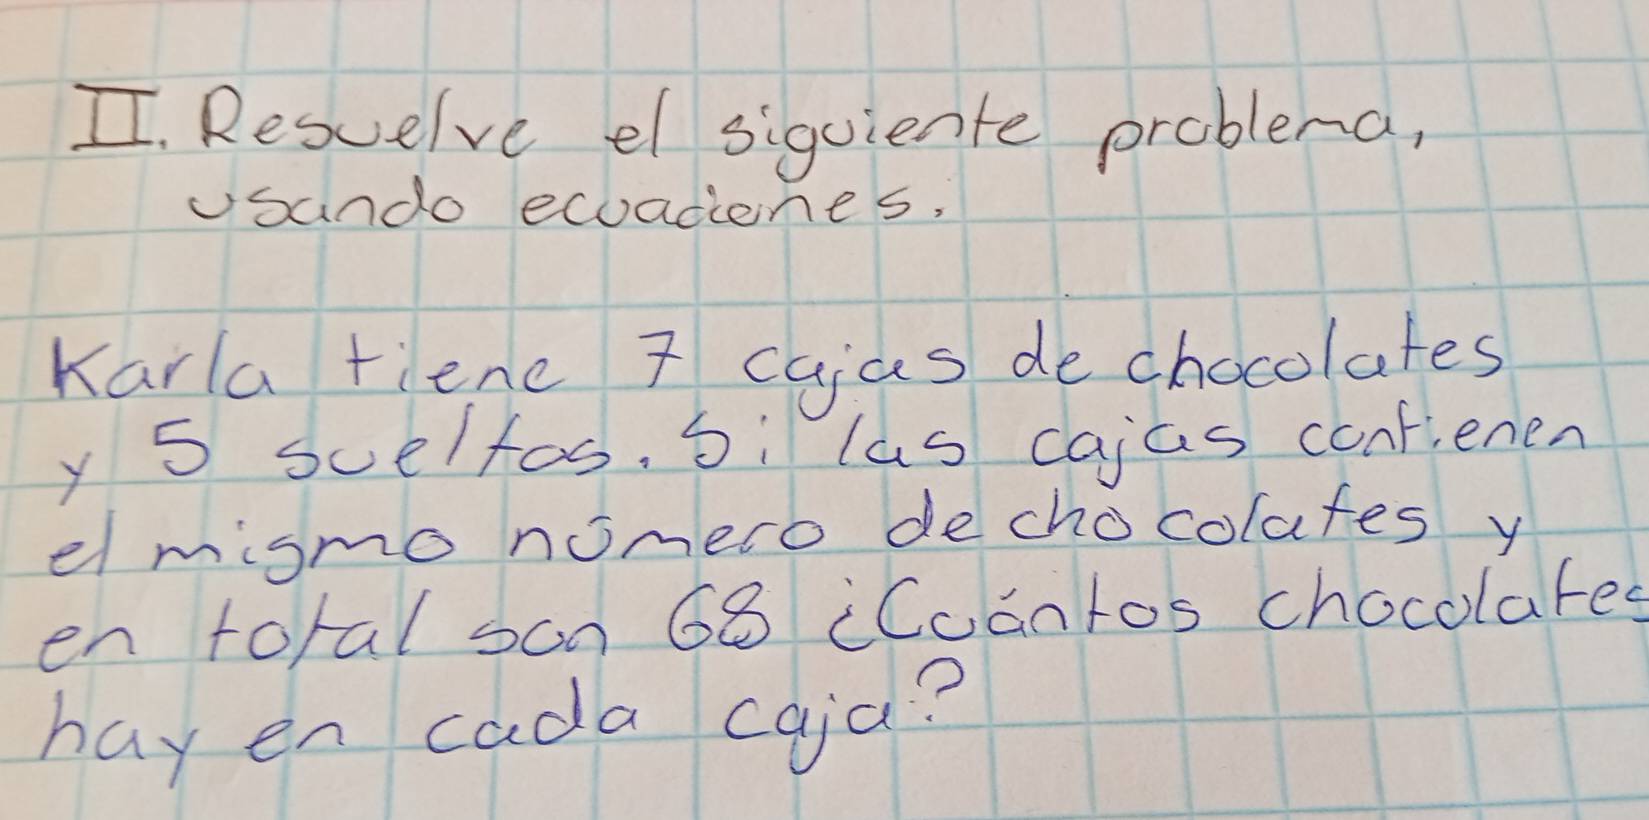 II. Resuelve el siguiente problema,
usando ecuaciones.
Karla tiene 7 cajas de chocolates
y 5 sueltos. Si las cajas contienen
el mismo número de chocolates y
en total son 68 ¿Cuántos chocolates
hay en cada caja?